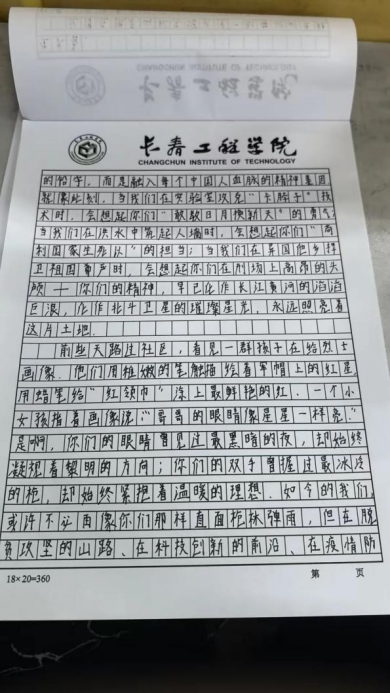 长春工程学院
CHANGCHUN INSTITUTE OF TECHNOLOGY
的铅字，而是融入每个中国人血脉的精神基因
就像此刻，当我们在实验室攻克“卡脖子”技
术时，会想起你们“敢教日月换新天”的勇气
当我们在洪水中筑起人墙时，会想起你们“苟
利国家生死以”的担当；当我们在异国他乡捍
卫祖国尊严时，会想起你们在刑场上高昂的头
颅——你们的精神，早已化作长江黄河的滔滔
巨浪，化作北斗卫星的璀璨星光，永远照亮着
这片土地.
前些天路过社区，看见一群孩子在给烈士
画像.他们用稚嫩的笔触描绘着军帽上的红星
用蜡笔给“红领巾”涂上最鲜艳的红.一个小
女孩指着画像说：“哥哥的眼睛像星星一样亮.”
是啊，你们的眼睛曾见过最黑暗的夜，却始终
凝视着黎明的方向；你们的双手曾握过最冰冷
的枪，却始终紧抱着温暖的理想.如今的我们，
或许不必再像你们那样直面枪林弹雨，但在脱
贫攻坚的山路、在科技创新的前沿、在疫情防
18×20=360
第 页